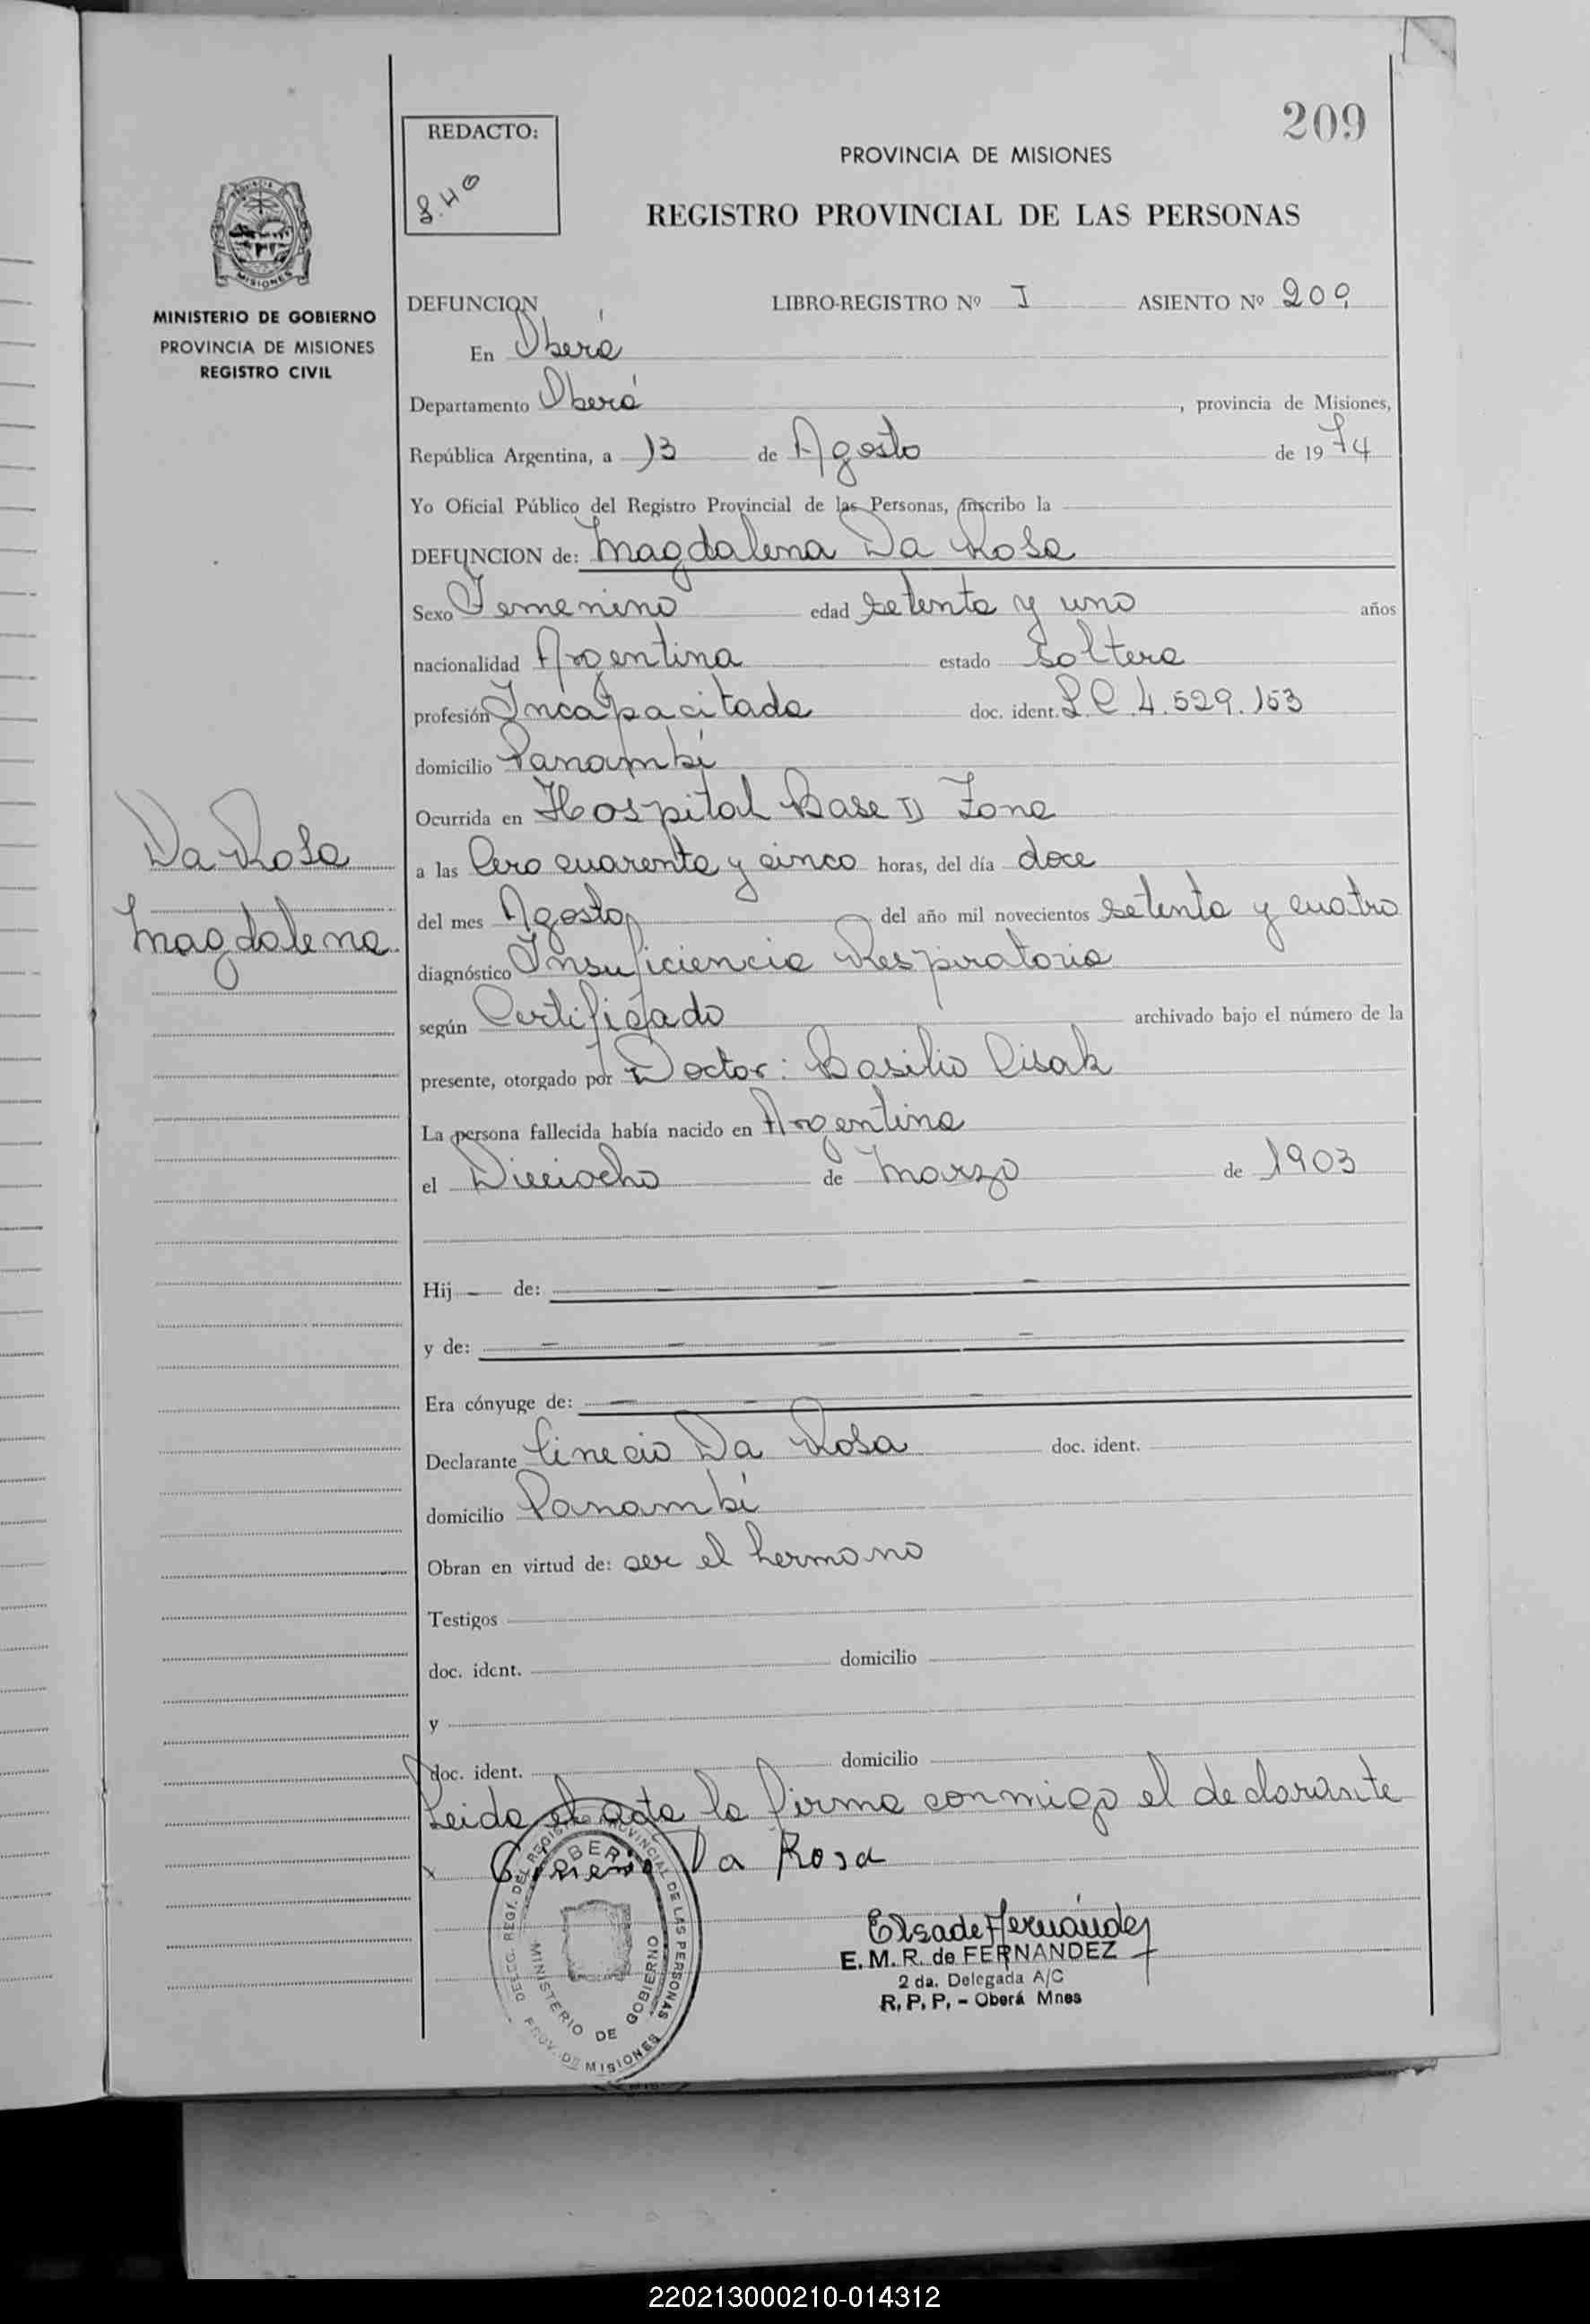 209
REDACTO:
PROVINCIA DE MISIONES
REGISTRO PROVINCIAL DE LAS PERSONAS
MINISTERIO DE GOBIERNO
PROVINCIA DE MISIONES
REGISTRO CIVIL
DEFUNCION LIBRO-REGISTRO Nº I ASIENTO Nº 209
En Oberá
Departamento Oberá, provincia de Misiones,
República Argentina, a 13 de Agosto de 1974
Yo Oficial Público del Registro Provincial de las Personas, inscribo la
DEFUNCION de: Magdalena Da Rosa
Sexo Femenino edad setenta y uno años
nacionalidad Argentina estado soltera
profesión Incapacitada doc. ident. L.C. 4.529.153
domicilio Panambí
Ocurrida en Hospital Base II Zona
Da Rosa
Magdalena
a las Cero cuarenta y cinco horas, del día doce
del mes Agosto del año mil novecientos setenta y cuatro
diagnóstico Insuficiencia Respiratoria
según Certificado archivado bajo el número de la
presente, otorgado por Doctor: Basilio Cisak
La persona fallecida había nacido en Argentina
el Dieciocho de Marzo de 1903
Hij — de: — — —
y de: — — — —
Era cónyuge de: — — —
Declarante Da Rosa doc. ident.
domicilio Panambí
Obran en virtud de: ser el hermano
Testigos
doc. ident. domicilio
y
doc. ident. domicilio
Leida el acta la firma conmigo el declarante
x Da Rosa
Elsa de Fernández
E. M. R. de FERNANDEZ
2 da. Delegada A/C
R. P. P. - Oberá Mnes
DELEG. REGT. DEL REGISTRO PROVINCIAL DE LAS PERSONAS
OBERA
MINISTERIO DE GOBIERNO
PROV. DE MISIONES
220213000210-014312